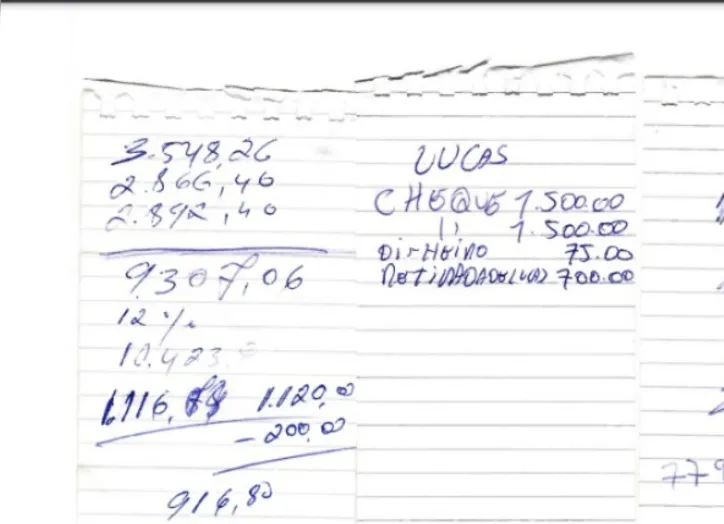 3.548,26
2.866,40
2.892,40
9.307,06
12%
10.423,
1.116,84 1.120,00
- 200,00
916,80
LUCAS
CHEQUE 1.500.00
11 1.500.00
DiNHEiRO 75.00
RETiRADA DE LUCAS 700.00
779